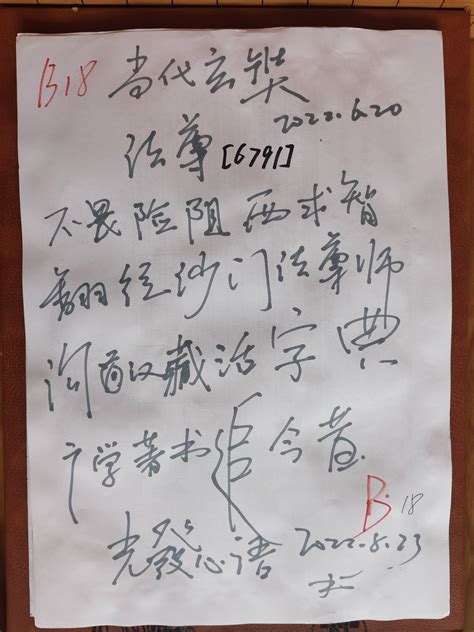 B18 当代玄奘
2022.6.20
法尊[6791]
不畏险阻西求智
翻经沙门法尊师
沟通汉藏活字典
广学著书追今昔
B.18
光发心语 2022.8.23